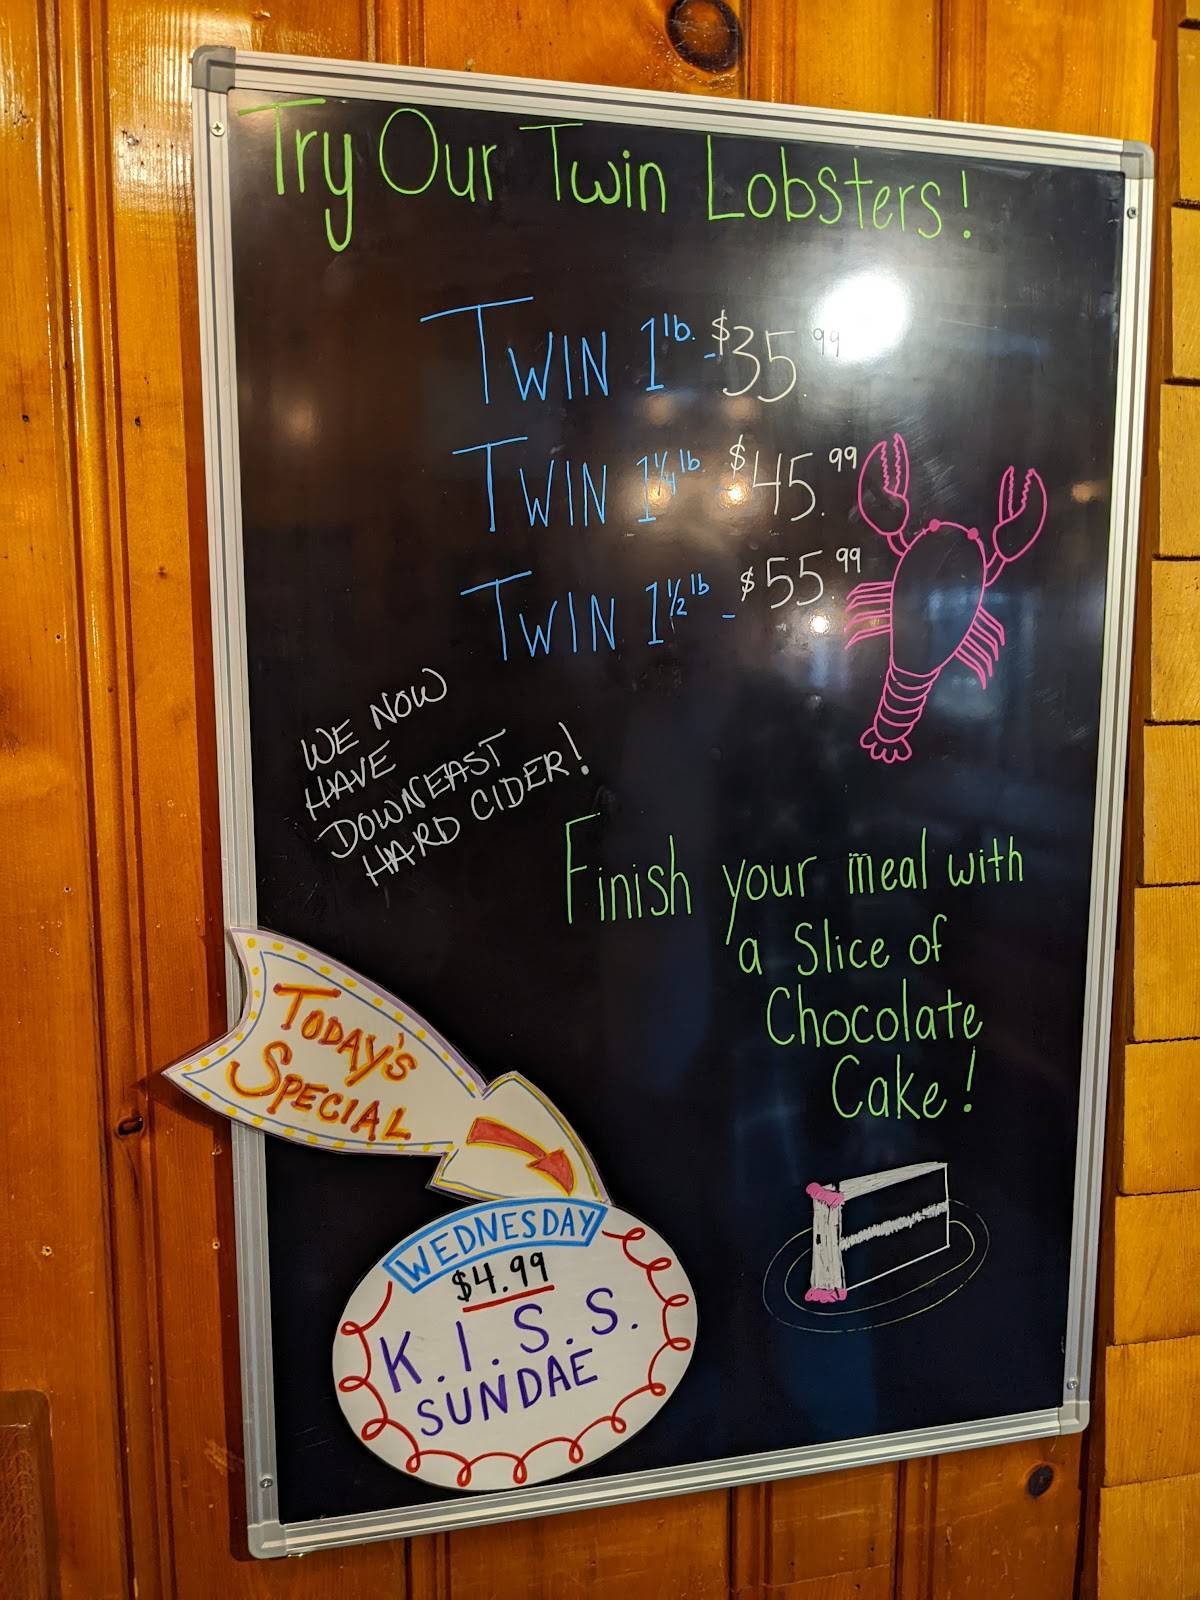 Try Our Twin Lobsters!
TWIN 1 lb. - $35.99
TWIN 1 1/4 lb. - $45.99
TWIN 1 1/2 lb - $55.99
WE NOW
HAVE
DOWNEAST
HARD CIDER!
Finish your meal with
a Slice of
Chocolate
Cake!
TODAY'S
SPECIAL
WEDNESDAY
$4.99
K.I.S.S.
SUNDAE